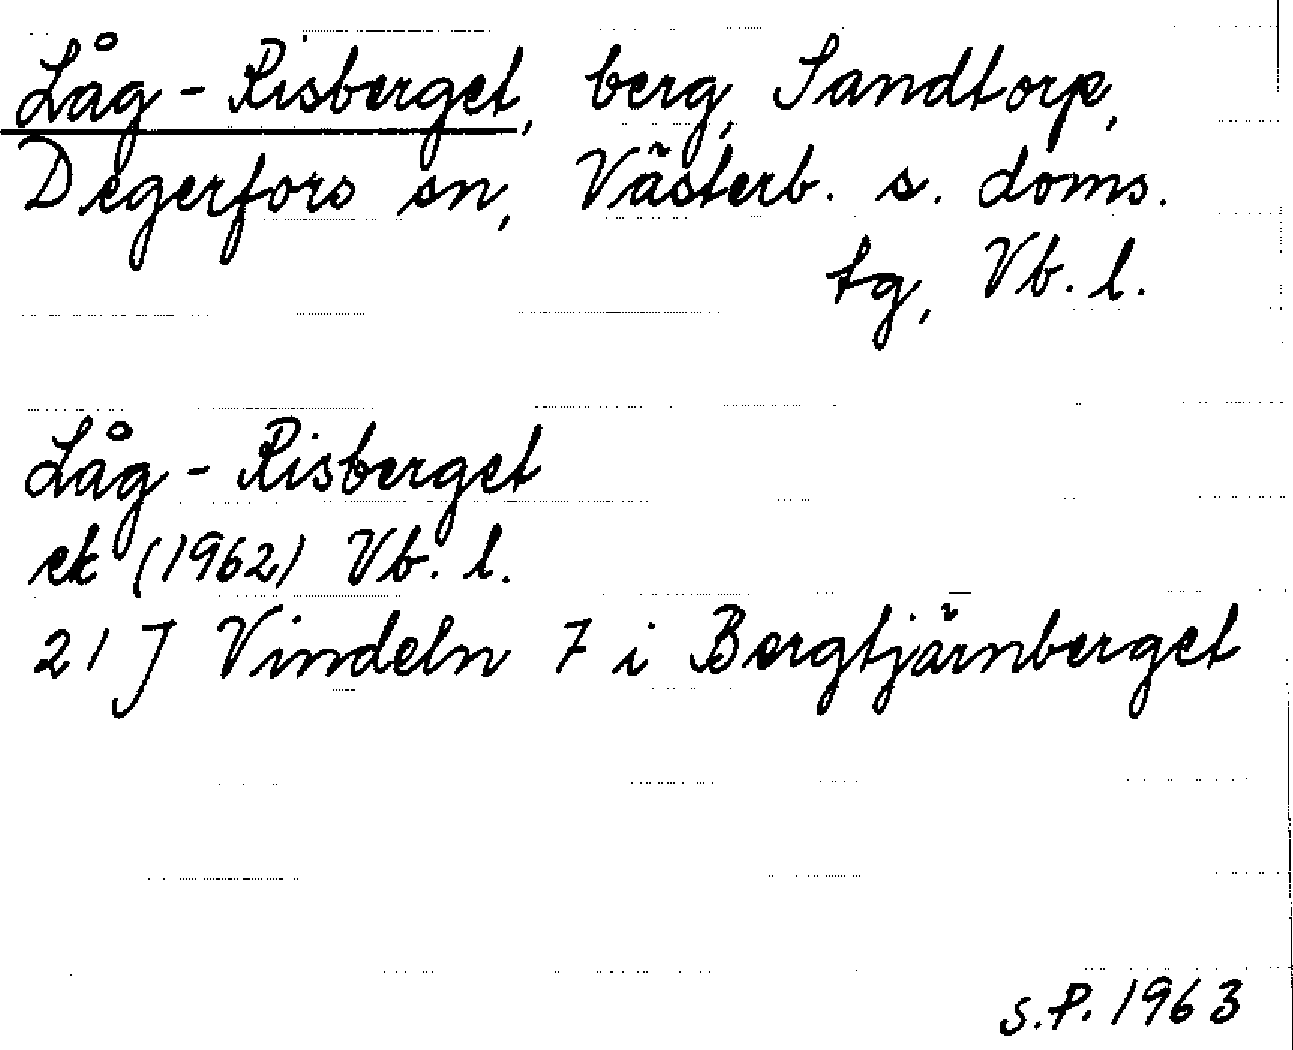 Låg-Risberget, berg, Sandtorp,
Degerfors sn, Västerb. s. doms.
tg, Vb. l.
Låg-Risberget
ek (1962) Vb. l.
21 J Vindeln 7 i Bergtjärnberget
S.P. 1963